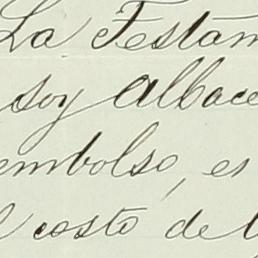 La Testam
soy albace
embolso, es
l costo de l